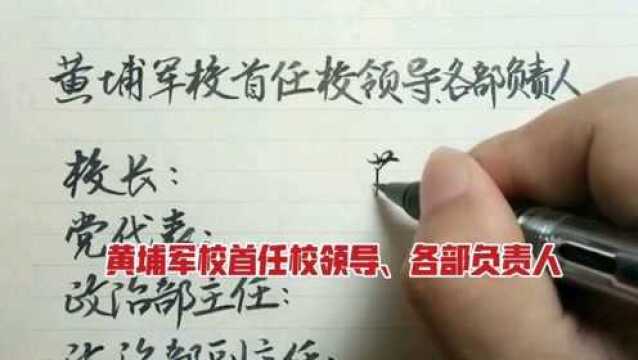 黄埔军校首任校领导、各部负责人
校长:
党代表:
黄埔军校首任校领导、各部负责人
政治部主任:
政治部副主任: